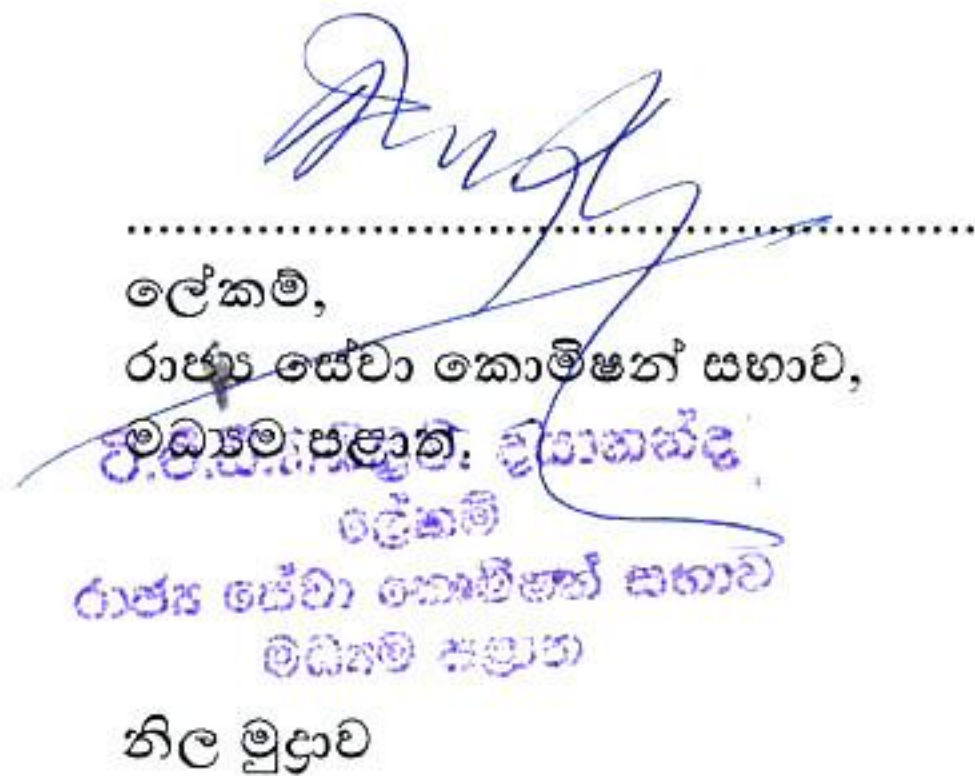 ලේකම්,
රාජ්‍ය සේවා කොමිෂන් සභාව,
මධ්‍යම පළාත.
දයානන්ද
ලේකම්
රාජ්‍ය සේවා කොමිෂන් සභාව
මධ්‍යම පළාත
නිල මුද්‍රාව